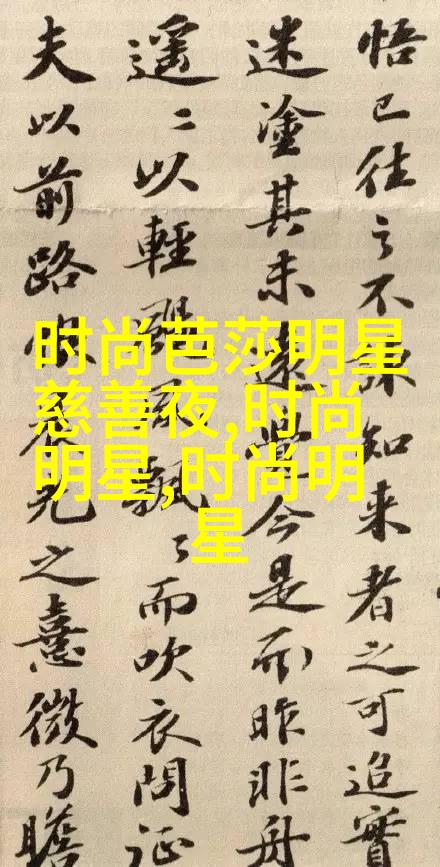 悟已往之不諫知来者之可追實
迷塗其未遠覺今是而昨非舟
遥〻以輕颺風飄〻而吹衣問征
夫以前路恨晨光之熹微乃瞻
时尚芭莎明星
慈善夜,时尚
明星,时尚明
星